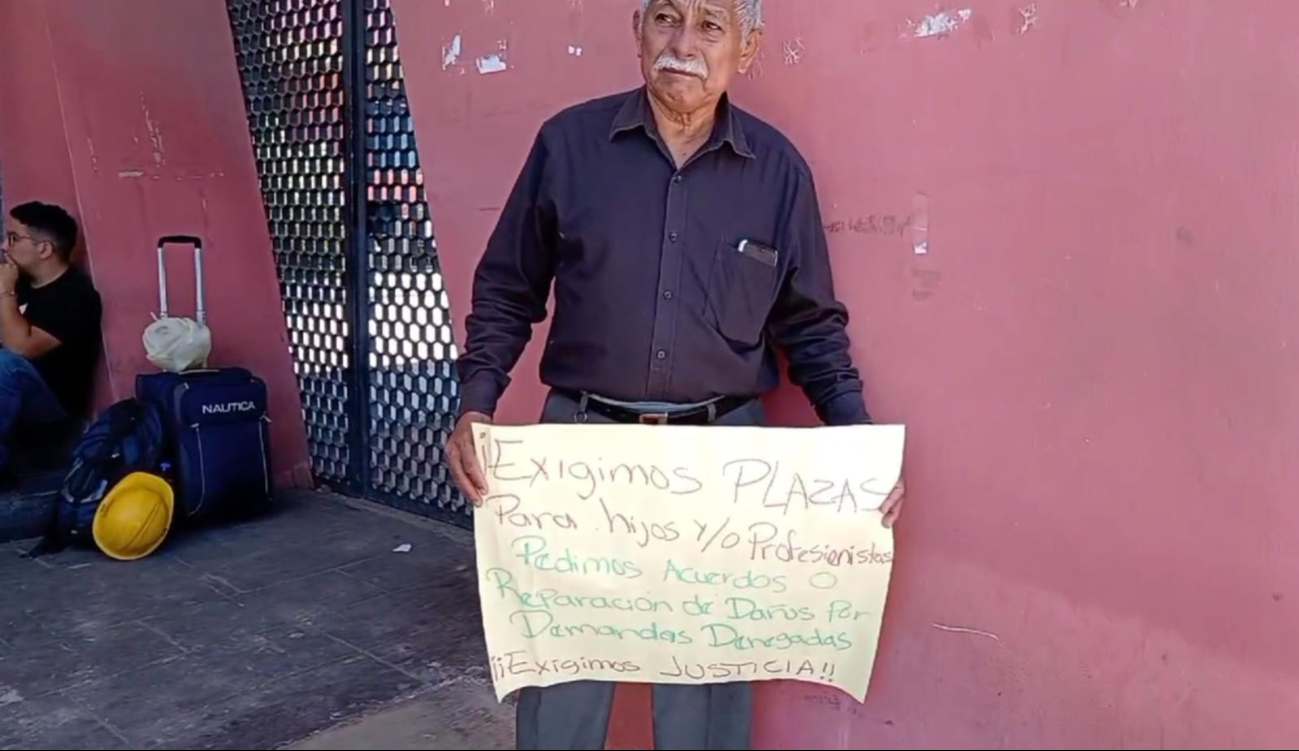 NAUTICA
¡Exigimos PLAZAS
Para hijos y/o Profesionistas
Pedimos Acuerdos O
Reparación de Daños Por
Demandas Denegadas
¡¡Exigimos JUSTICIA!!